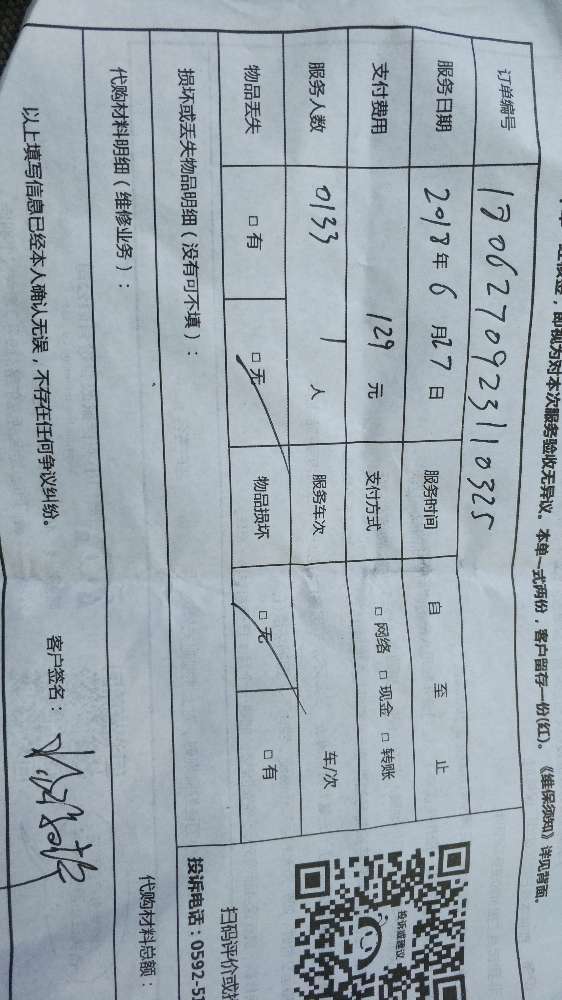 单一经核签，即视为对本次服务验收无异议。本单一式两份，客户留存一份(红)。《维保须知》详见背面。
订单编号 1806270923110325
服务日期 2018年6月27日 服务时间 自 至 止
支付费用 129元 支付方式 □网络 □现金 □转账
服务人数 0133 1人 服务车次 车/次
物品丢失 □有 □无 物品损坏 □无 □有
损坏或丢失物品明细（没有可不填）：
代购材料明细（维修业务）：
代购材料总额：
以上填写信息已经本人确认无误，不存在任何争议纠纷。 客户签名：
投诉或建议
扫码评价或投
投诉电话：0592-5